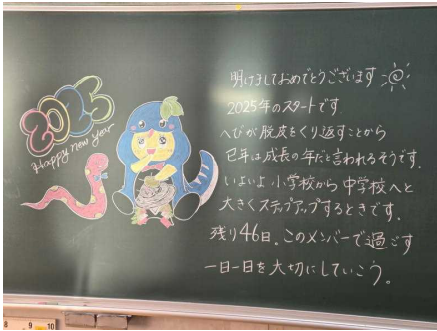 2025
Happy new year
明けましておめでとうございます
2025年のスタートです
へびが脱皮をくり返すことから
巳年は成長の年だと言われるそうです。
いよいよ小学校から中学校へと
大きくステップアップするときです。
残り46日。このメンバーで過ごす
一日一日を大切にしていこう。
8 9 10